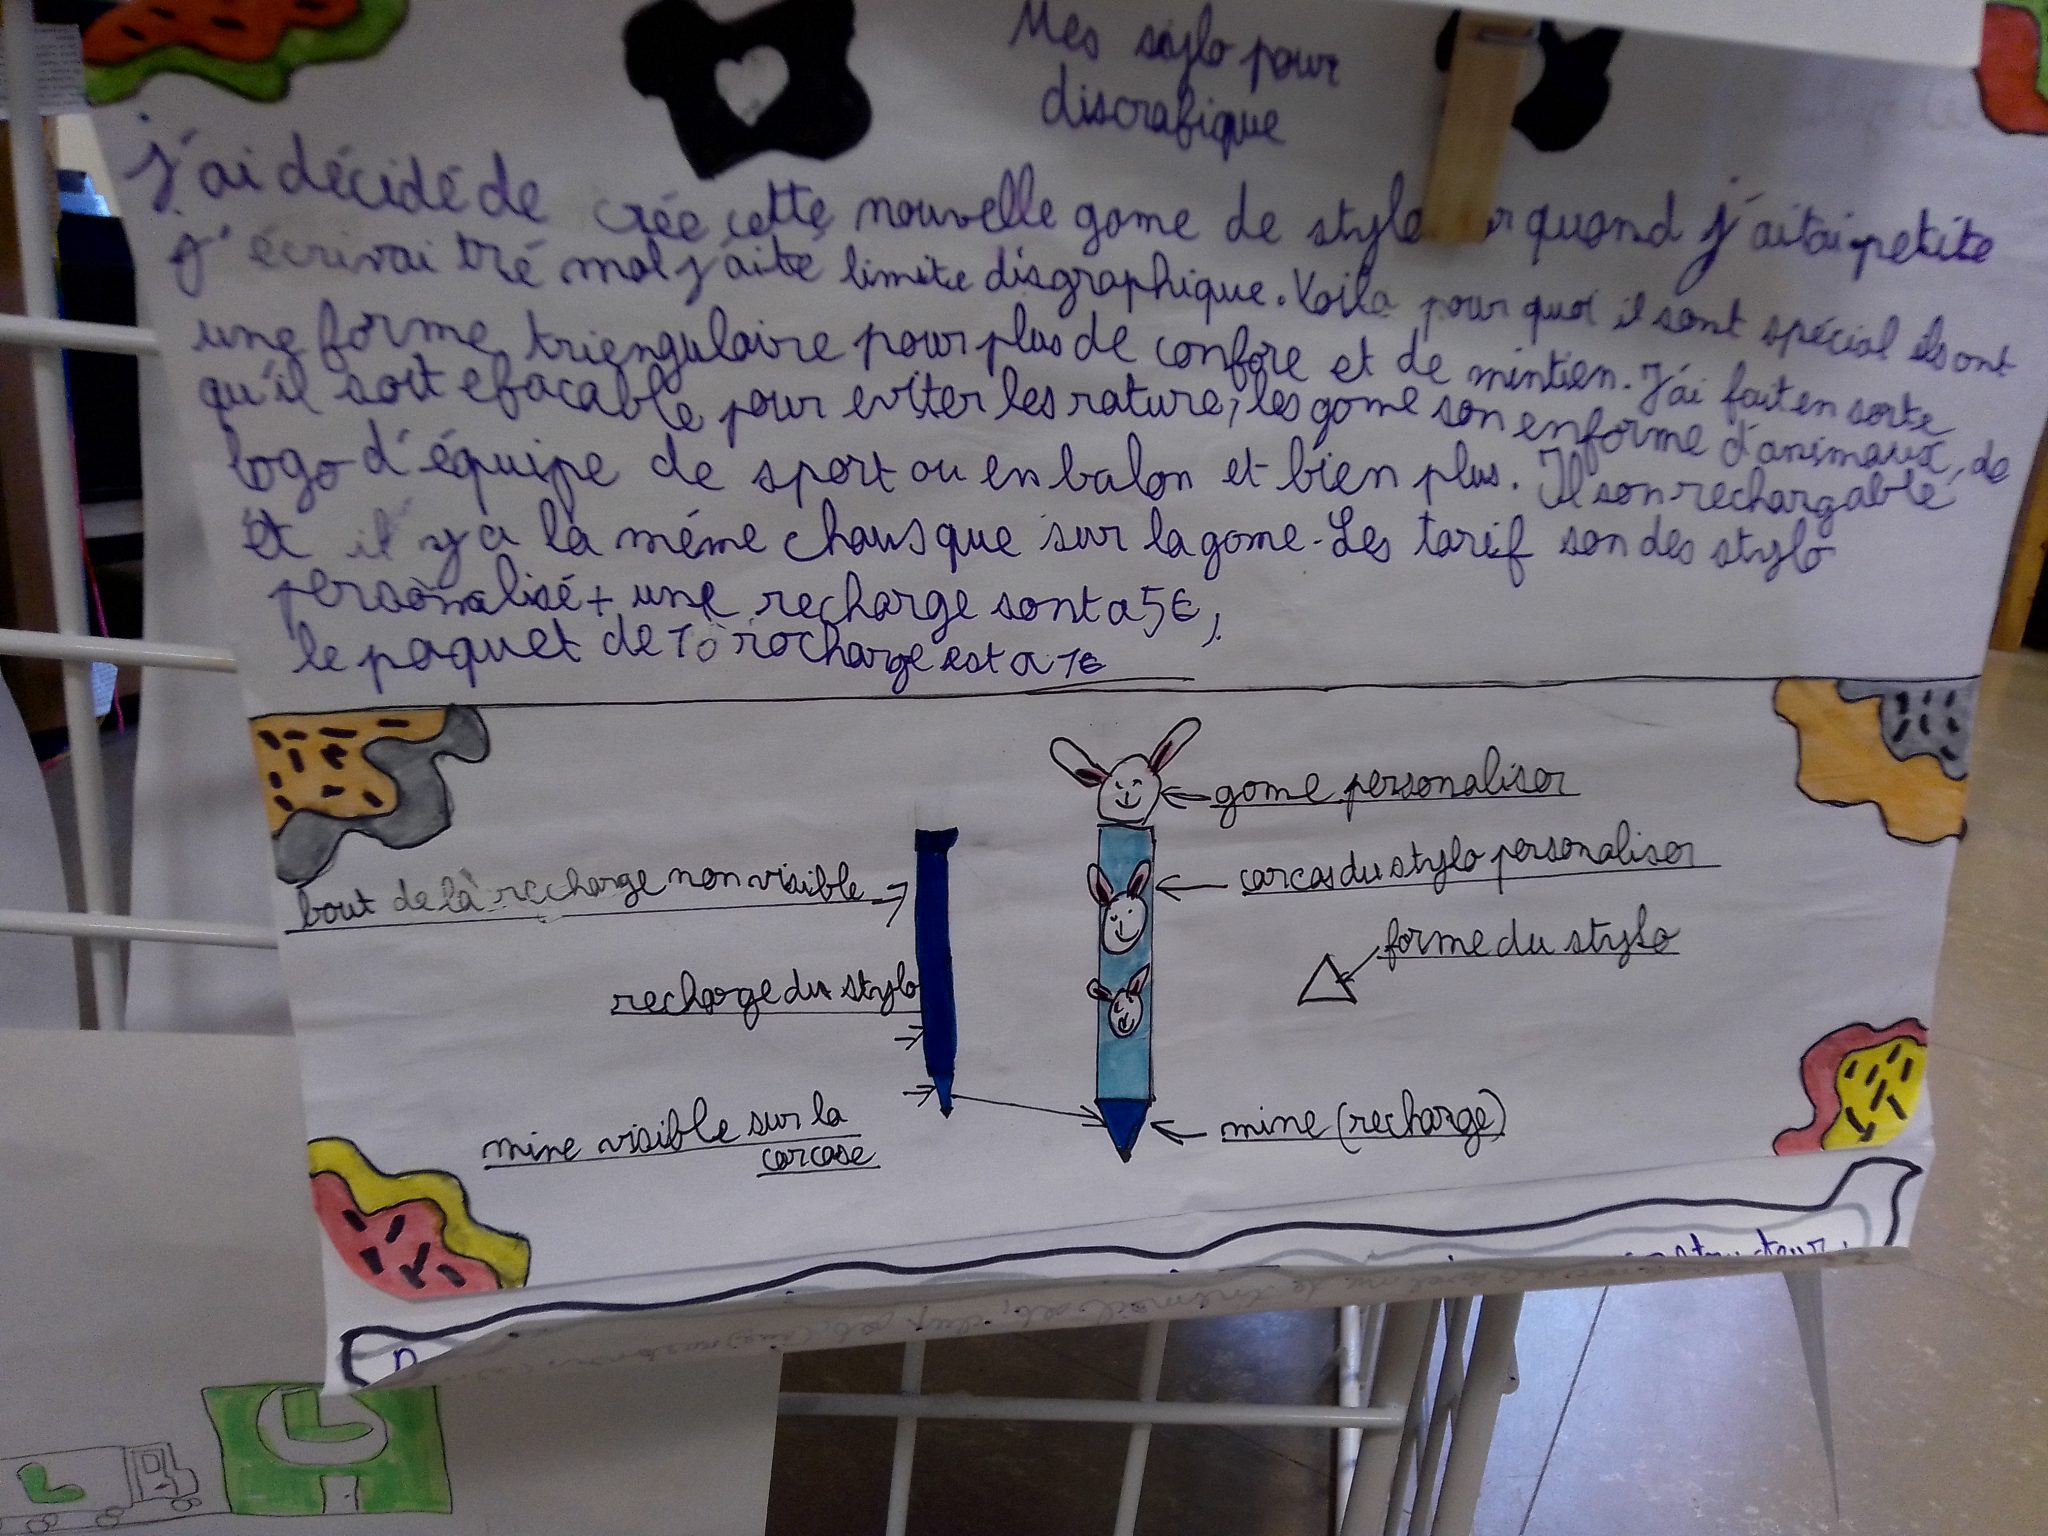 Mes stylo pour
discrafique
j'ai décidé de crée cette nouvelle gome de stylo quand j'aitai petite
j'écrivai tré mal j'aité limite disgraphique. Voila pour quoi il sont spécial ils ont
une forme triengulaire pour plus de confore et de mintien. J'ai fait en sorte
qu'il soit efacable pour eviter les rature, les gome son en forme d'animaux, de
logo d'équipe de sport ou en balon et bien plus. Il son rechargable
Et il y a la méme chaus que sur la gome. Les tarif son des stylo
persònalisé + une recharge sont a 5€,
le paquet de 10 rocharge est a 7€
gome personaliser
carcas du stylo personaliser
bout de là recharge non visible
forme du stylo
recharge du stylo
mine visible sur la
carcase
mine (recharge)